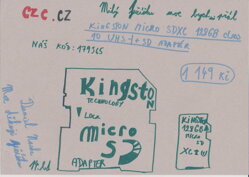 czc.cz
Milý Ježíšku moc bych si přál
KINGSTON MICRO SDXC 128GB class
10 UHS-I + SD ADAPTÉR
NÁŠ KÓD: 179565
1 149 Kč
Kingston
TECHNOLOGY
LOCK
micro
SD
ADAPTER
KINGSTON
128GB
MICRO
SD
XC I
Daniel
Moc děkuji Ježíšku
11 let